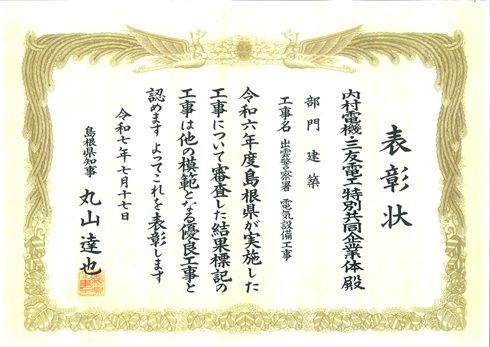 表彰状
内村電機・三友電工特別共同企業体 殿
部門 建築
工事名 出雲警察署 電気設備工事
令和六年度島根県が実施した
工事について審査した結果標記の
工事は他の模範となる優良工事と
認めます よってこれを表彰します
令和七年七月十七日
島根県知事 丸山達也